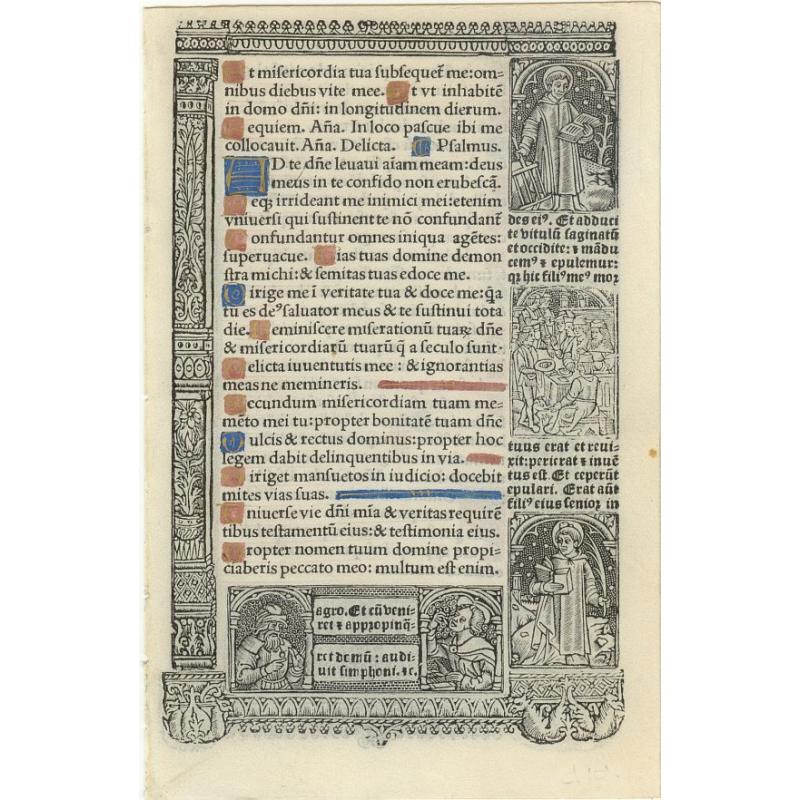 Et misericordia tua subsequet̃ me: om=
nibus diebus vite mee. Et vt inhabitē
in domo dñi: in longitudinem dierum.
Requiem. Aña. In loco pascue ibi me
collocauit. Aña. Delicta. Psalmus.
AD te dñe leuaui aĩam meam: deus
meus in te confido non erubescã.
Neqȝ irrideant me inimici mei: etenim
vniuersi qui sustinent te nõ confundant̃
Confundantur omnes iniqua agẽtes:
superuacue. Uias tuas domine demon
stra michi: & semitas tuas edoce me.
Dirige me ĩ veritate tua & doce me: q̃a
tu es deꝰ saluator meus & te sustinui tota
die. Reminiscere miserationũ tuaꝝ dñe
& misericordiarũ tuarũ q̃ a seculo sunt.
Delicta iuuentutis mee: & ignorantias
meas ne memineris.
Secundum misericordiam tuam me=
mẽto mei tu: propter bonitatẽ tuam dñe
Dulcis & rectus dominus: propter hoc
legem dabit delinquentibus in via.
Diriget mansuetos in iudicio: docebit
mites vias suas.
Uniuerse vie dñi mĩa & veritas requirẽ
tibus testamentũ eius: & testimonia eius.
Propter nomen tuum domine propi=
ciaberis peccato meo: multum est enim.
des eiꝰ. Et adduci
te vitulũ saginatũ
et occidite: ⁊ mãdu
cemꝰ ⁊ epulemur:
qꝛ hic filiꝰ meꝰ moꝛ
tuus erat et reui-
xit: perierat ⁊ inuẽ
tus est. Et ceperũt
epulari. Erat aũt
filiꝰ eius senioꝛ in
agro. Et cũ veni-
ret ⁊ appropinq̃-
ret domũ: audi-
uit simphoni. ⁊c.